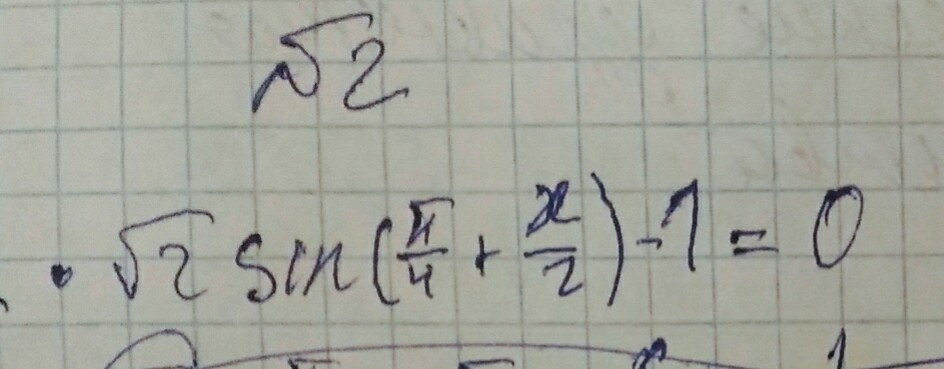 √2
• √2 sin(π/4 + x/2) - 1 = 0